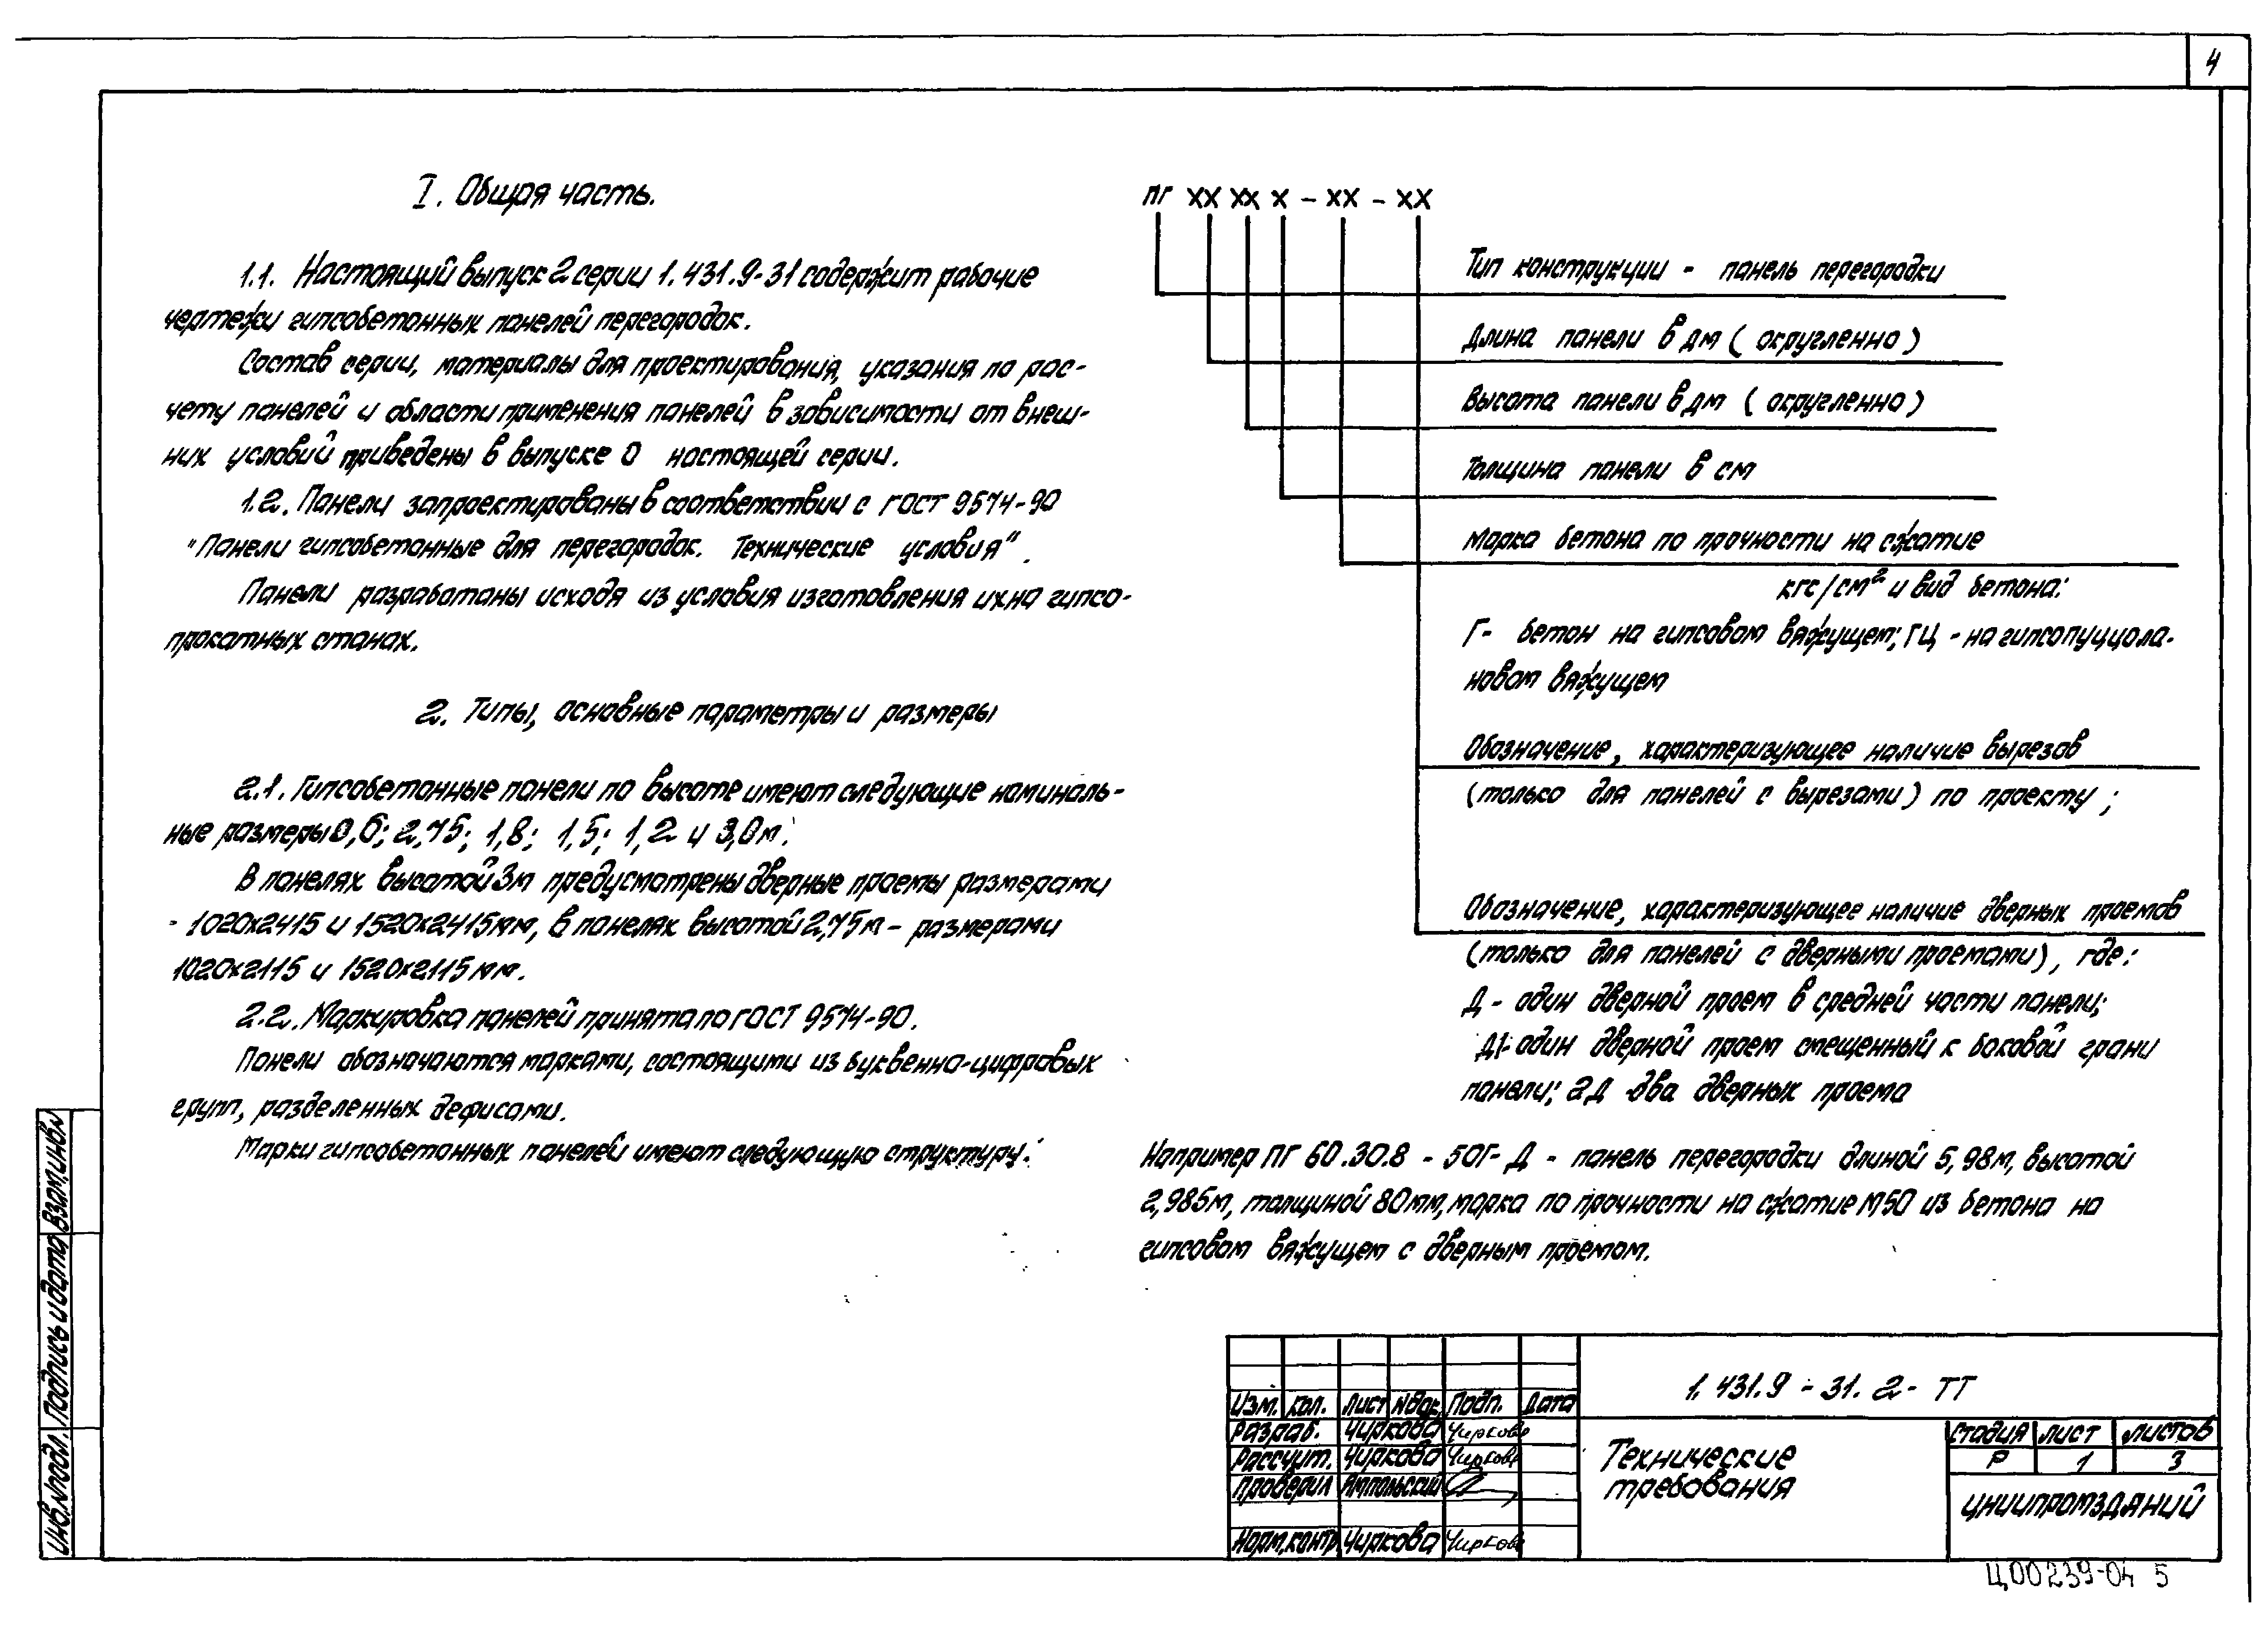 4
I. Общая часть.
1.1. Настоящий выпуск 2 серии 1.431.9-31 содержит рабочие
чертежи гипсобетонных панелей перегородок.
Состав серии, материалы для проектирования, указания по рас-
чету панелей и области применения панелей в зависимости от внеш-
них условий приведены в выпуске 0 настоящей серии.
1.2. Панели запроектированы в соответствии с ГОСТ 9574-90
"Панели гипсобетонные для перегородок. Технические условия".
Панели разработаны исходя из условия изготовления их на гипсо-
прокатных станах.
2. Типы, основные параметры и размеры
2.1. Гипсобетонные панели по высоте имеют следующие номиналь-
ные размеры 0,6; 2,75; 1,8; 1,5; 1,2 и 3,0м.
В панелях высотой 3м предусмотрены дверные проемы размерами
- 1020х2415 и 1520х2415мм, в панелях высотой 2,75м - размерами
1020х2115 и 1520х2115мм.
2.2. Маркировка панелей принята по ГОСТ 9574-90.
Панели обозначаются марками, состоящими из буквенно-цифровых
групп, разделенных дефисами.
Марки гипсобетонных панелей имеют следующую структуру:
ПГ ХХ ХХ Х - ХХ - ХХ
Тип конструкции - панель перегородки
Длина панели в дм (округленно)
Высота панели в дм (округленно)
Толщина панели в см
Марка бетона по прочности на сжатие
кгс/см² и вид бетона:
Г- бетон на гипсовом вяжущем; ГЦ - на гипсопуццола-
новом вяжущем
Обозначение, характеризующее наличие вырезов
(только для панелей с вырезами) по проекту;
Обозначение, характеризующее наличие дверных проемов
(только для панелей с дверными проемами), где:
Д - один дверной проем в средней части панели;
Д1- один дверной проем смещенный к боковой грани
панели; 2Д -два дверных проема
Например ПГ 60.30.8 - 50Г- Д - панель перегородки длиной 5,98м, высотой
2,985м, толщиной 80мм, марка по прочности на сжатие М50 из бетона на
гипсовом вяжущем с дверным проемом.
Взам.инв.№
Подпись и дата
Инв.№подл.
Изм. Кол. Лист №док. Подп. Дата
Разраб. Чиркова Чиркова
Рассчит. Чиркова Чиркова
Проверил Ямпольский
Норм.контр. Чиркова Чиркова
1.431.9 - 31.2- ТТ
Технические
требования
Стадия Лист Листов
Р 1 3
ЦНИИПРОМЗДАНИЙ
Ц00239-04 5